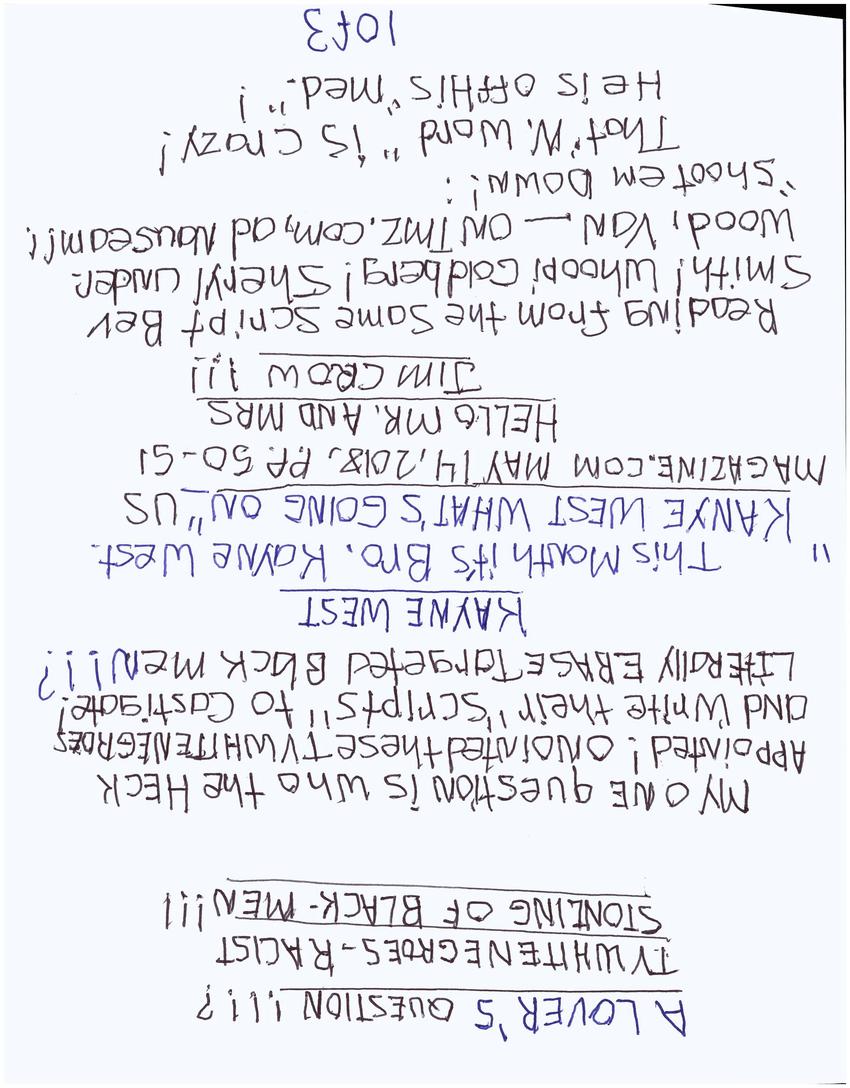 A LOVER'S QUESTION!!!?
TYWHITENEGROES-RACIST
STONLING OF BLACK-MEN!!!
MY ONE question is who the HECK
APPOINTED! ONOINTED these TYWHITENEGROES
and Write their "Scripts" to Castigate!
LITERALLY ERASE Targeted Black MEN!!!?
KAYNE WEST
" This Month it's Bro. Kayne West.
KANYE WEST WHAT'S GOING ON" US
MAGAZINE.COM MAY 14, 2018, PP. 50-51
HELLO MR. AND MRS
JIM CROW !!!
Reading from the same Script Bev
Smith! Whoopi Goldberg! Sheryl under.
Wood, VAN — ON TMZ.com, ad Nauseam!!
"Shoot em Down!!
That "N. Word" is Crazy!
He is off His "Med."!
1 of 3